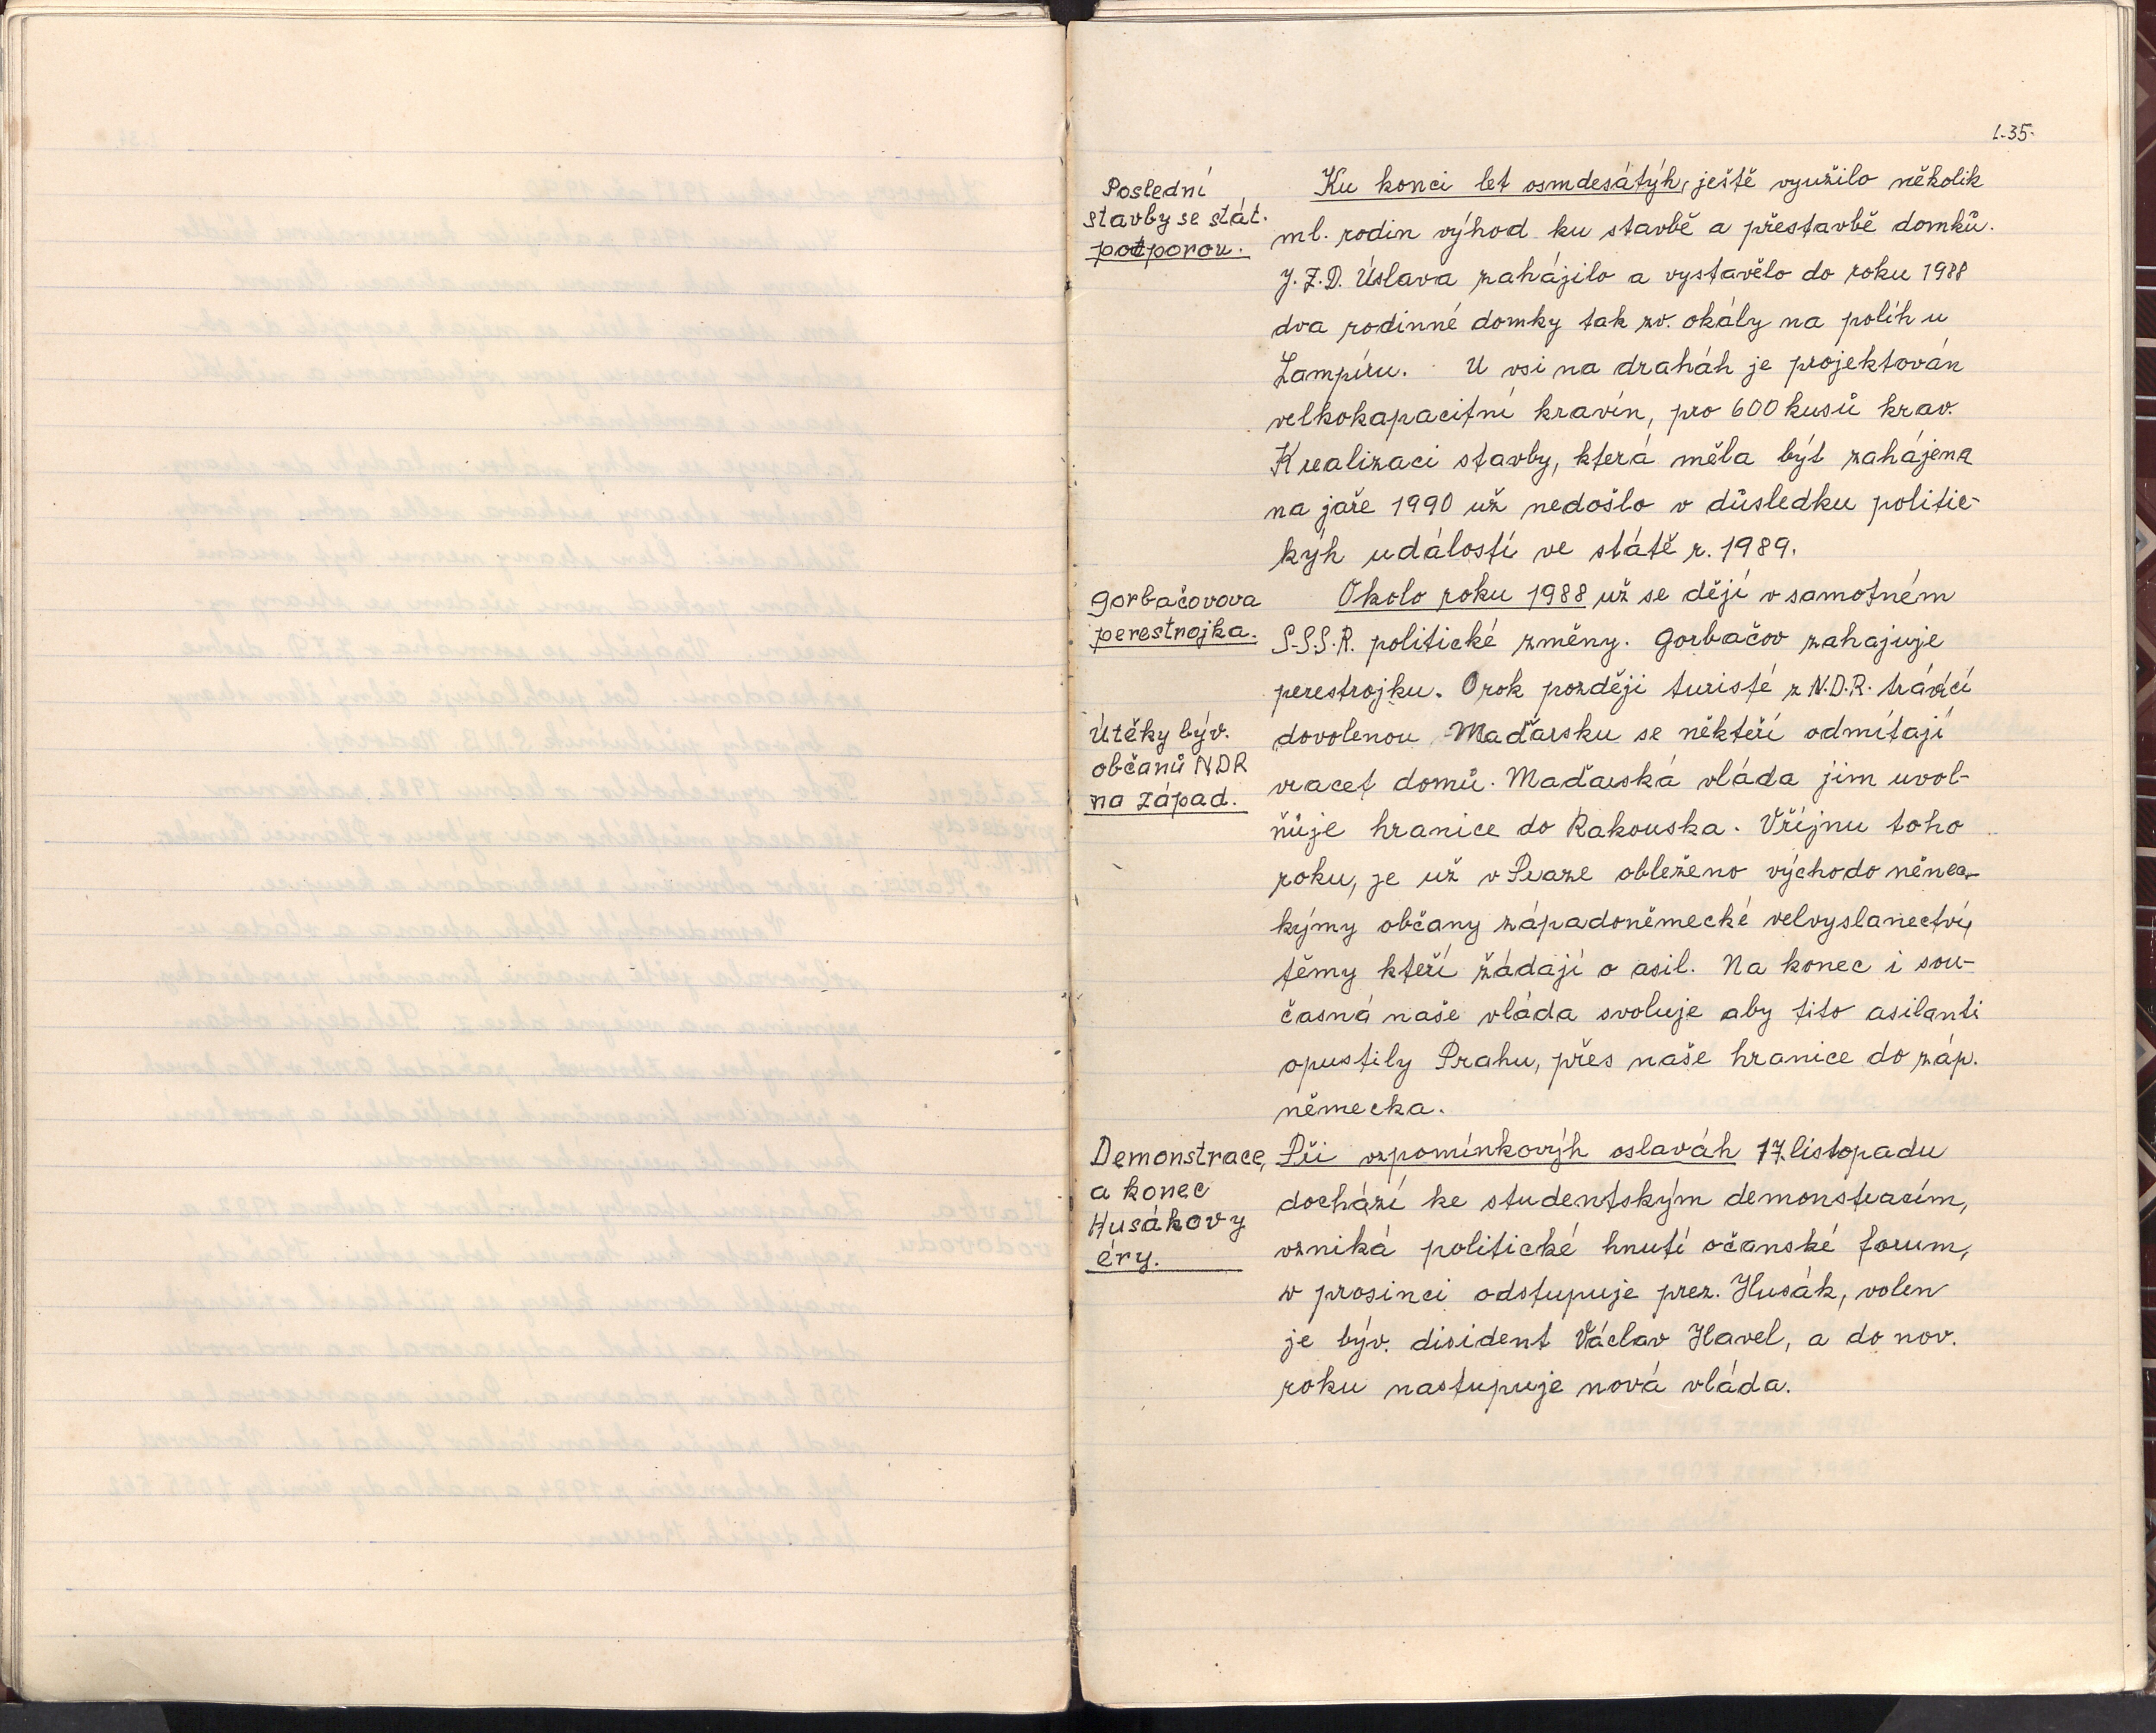 1.35.
Poslední
stavby se stát.
potporou.
Ku konci let osmdesátýh, ještě využilo několik
ml. rodin výhod ku stavbě a přestavbě domků.
J.Z.D. Úslava zahájilo a vystavělo do roku 1988
dva rodinné domky tak zv. okály na políh u
Lampíru. U vsi na draháh je projektován
velkokapacitní kravín, pro 600 kusů krav.
K realizaci stavby, která měla být zahájena
na jaře 1990 už nedošlo v důsledku politic-
kýh událostí ve státě r. 1989.
Gorbačovova
perestrojka.
Okolo roku 1988 už se dějí v samotném
S.S.S.R. politické změny. Gorbačov zahajuje
perestrojku. O rok později turisté z N.D.R. trávící
Útěky býv.
občanů NDR
na západ.
dovolenou Maďarsku se někteří odmítají
vracet domů. Maďarská vláda jim uvol-
ňůje hranice do Rakouska. V říjnu toho
roku, je už v Praze obleženo východo něnec-
kýmy občany západoněmecké velvyslanectví,
těmy kteří žádají o asil. Na konec i sou-
časná naše vláda svoluje aby tito asilanti
opustily Prahu, přes naše hranice do záp.
německa.
Demonstrace,
a konec
Husákovy
éry.
Při vzpomínkovýh oslaváh 17. listopadu
dochází ke studentským demonstracím,
vzniká politické hnutí očanské forum,
v prosinci odstupuje prez. Husák, volen
je býv. disident Václav Havel, a do nov.
roku nastupuje nová vláda.